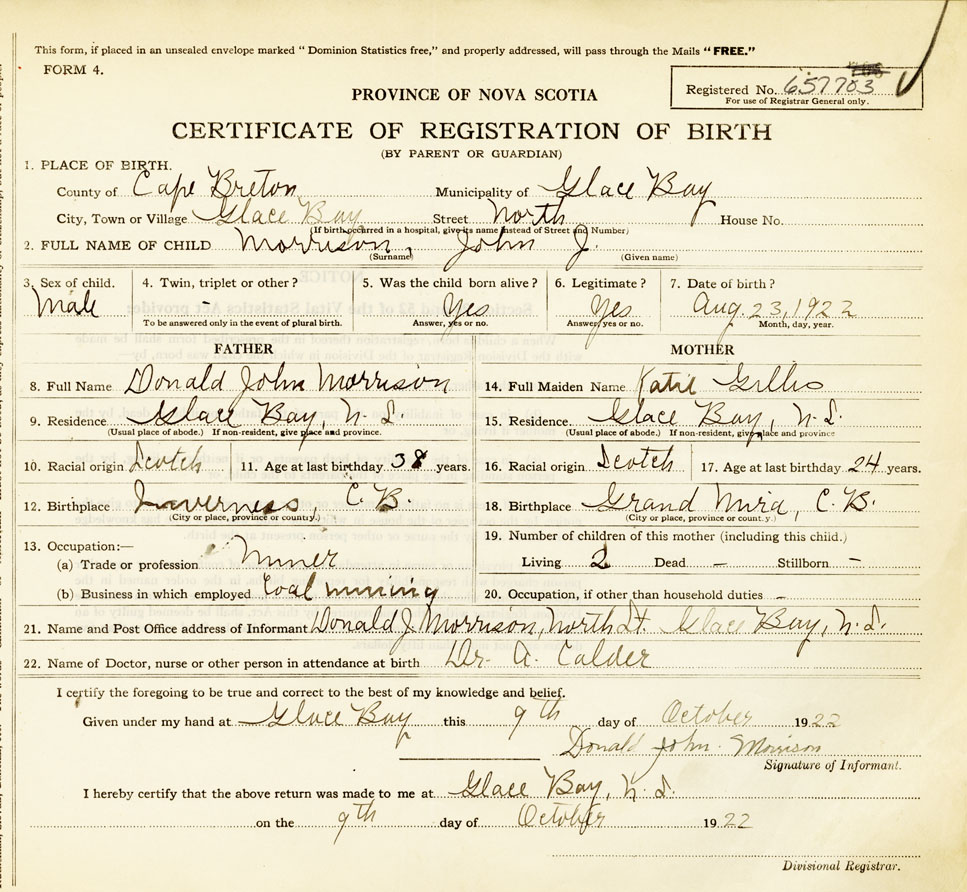 This form, if placed in an unsealed envelope marked "Dominion Statistics free," and properly addressed, will pass through the Mails "FREE."
FORM 4.
Registered No. 657703
For use of Registrar General only.
PROVINCE OF NOVA SCOTIA
CERTIFICATE OF REGISTRATION OF BIRTH
(BY PARENT OR GUARDIAN)
1. PLACE OF BIRTH.
County of Cape Breton Municipality of Glace Bay
City, Town or Village Glace Bay Street North House No.
(If birth occurred in a hospital, give its name instead of Street and Number)
2. FULL NAME OF CHILD Morrison, John J.
(Surname) (Given name)
3. Sex of child. 4. Twin, triplet or other? 5. Was the child born alive? 6. Legitimate? 7. Date of birth?
Male - Yes Yes Aug. 23, 1922
To be answered only in the event of plural birth. Answer, yes or no. Answer, yes or no. Month, day, year.
FATHER MOTHER
8. Full Name Donald John Morrison 14. Full Maiden Name Katie Gillis
9. Residence Glace Bay, N.S. 15. Residence Glace Bay, N.S.
(Usual place of abode.) If non-resident, give place and province. (Usual place of abode.) If non-resident, give place and province
10. Racial origin Scotch 11. Age at last birthday 38 years. 16. Racial origin Scotch 17. Age at last birthday 24 years.
12. Birthplace Inverness, C.B. 18. Birthplace Grand Mira, C.B.
(City or place, province or country.) (City or place, province or country.)
13. Occupation:— 19. Number of children of this mother (including this child.)
(a) Trade or profession Miner Living 2 Dead — Stillborn —
(b) Business in which employed Coal mining 20. Occupation, if other than household duties -
21. Name and Post Office address of Informant Donald J. Morrison, North St. Glace Bay, N.S.
22. Name of Doctor, nurse or other person in attendance at birth Dr. A. Calder
I certify the foregoing to be true and correct to the best of my knowledge and belief.
Given under my hand at Glace Bay this 9th day of October 1922
Donald John Morrison
Signature of Informant.
I hereby certify that the above return was made to me at Glace Bay, N.S.
on the 9th day of October 1922
Divisional Registrar.